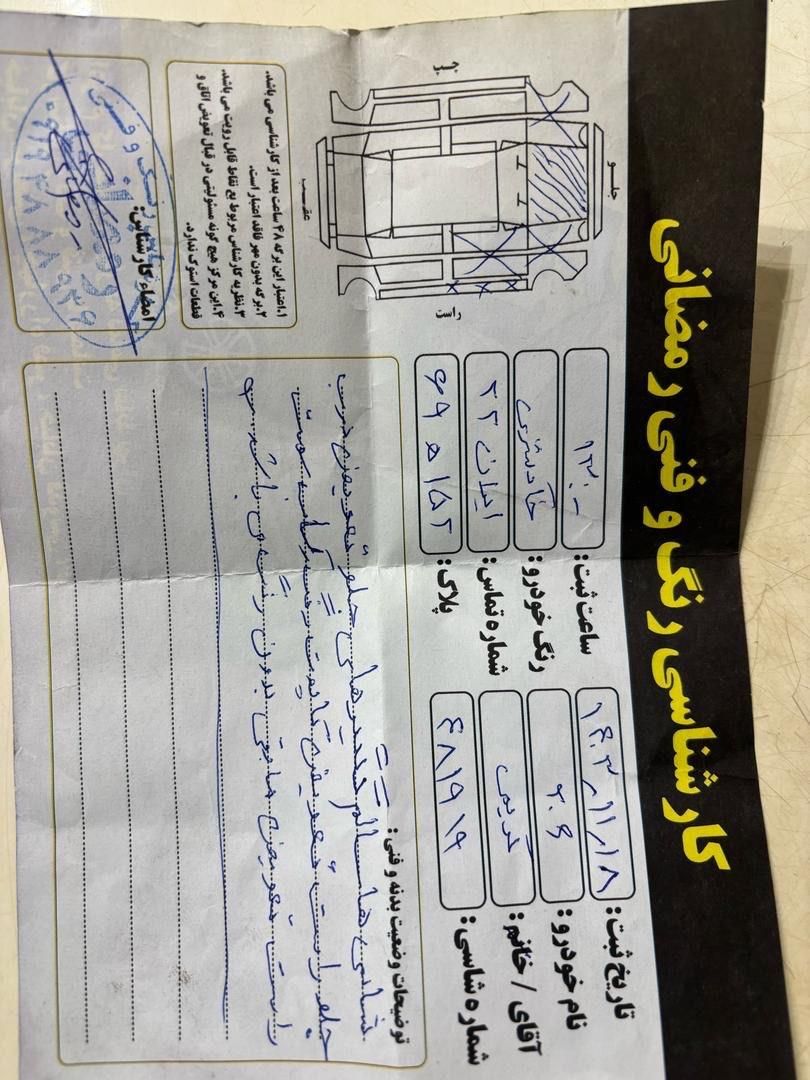 کارشناسی رنگ و فنی رمضانی
تاریخ ثبت: ۱۴۰۳/۱۱/۱۸
ساعت ثبت: ۱۳:۰۰
نام خودرو: ۲۰۶
رنگ خودرو: خاکستری
آقای / خانم: کریمی
شماره تماس: ایران ۲۲
شماره شاسی: ۴۸۱۹۱۹
پلاک:
جلو
چپ
راست
عقب
توضیحات وضعیت بدنه و فنی:
شاسی ها سالم گلگیرهای جلو تعویض درب
جلو راست تعویض کاپوت رنگ
راست تعویض مابقی بدون رنگ می باشد
۱.اعتبار این برگه ۴۸ ساعت بعد از کارشناسی می باشد.
۲.برگه بدون مهر فاقد اعتبار است.
۳.نظریه کارشناس مربوط به نقاط قابل رویت می باشد.
۴.این مرکز هیچ گونه مسئولیتی در قبال تعویض اتاق و
قطعات استوک ندارد.
امضاء کارشناس: